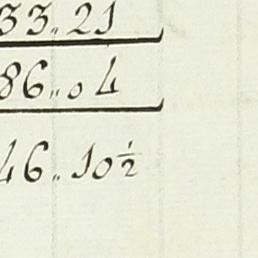 33.. 21
86.. 04
46.. 10½